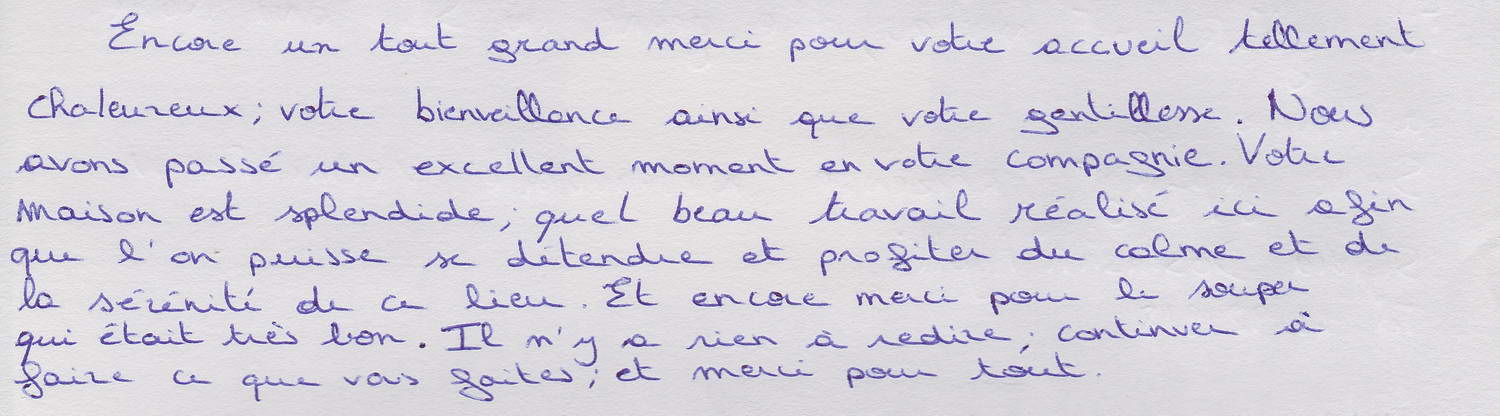 Encore un tout grand merci pour votre accueil tellement
chaleureux; votre bienveillance ainsi que votre gentillesse. Nous
avons passé un excellent moment en votre compagnie. Votre
maison est splendide; quel beau travail réalisé ici afin
que l'on puisse se détendre et profiter du calme et de
la sérénité de ce lieu. Et encore merci pour le souper
qui était très bon. Il n'y a rien à redire; continuer à
faire ce que vous faites; et merci pour tout.